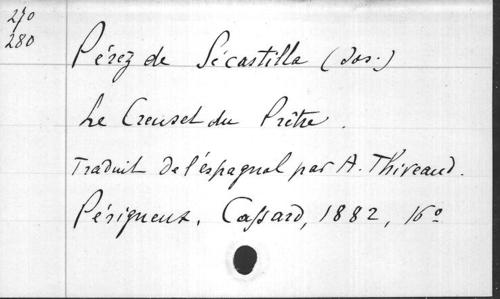 270
280
Pérez de Sécastilla (Jos.)
Le Creuset du Prêtre.
Traduit de l'espagnol par A. Thiveaud.
Périgueux, Cassard, 1882, 16º